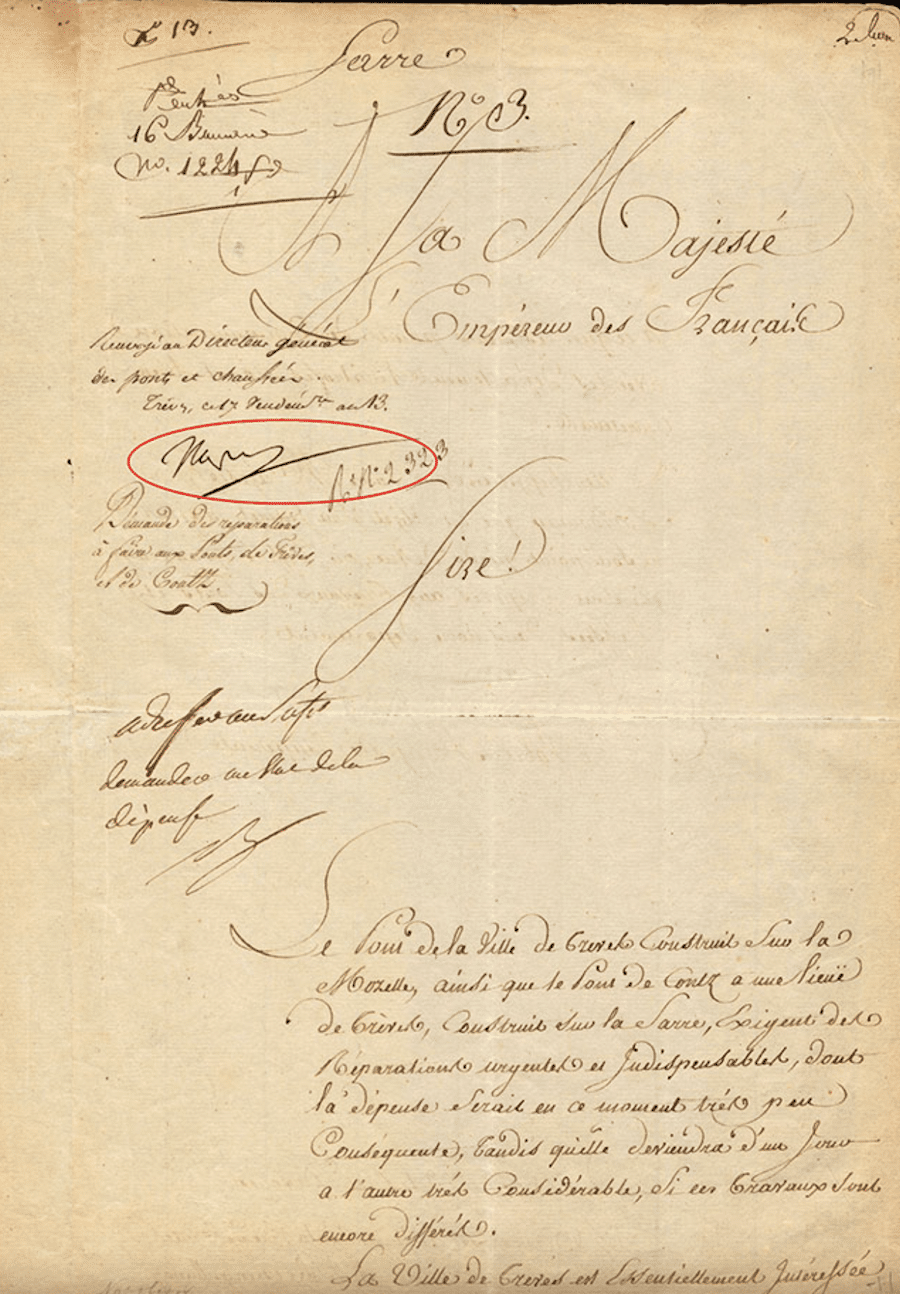 Lᵉ 13.
Sarre
Nº 3.
16 Brumaire
No. 1224
A Sa Majesté
L'Empéreur des Français
Renvoyé au Directeur général
des ponts et chaussées.
Trèves, ce 17 Vendémre an 13.
Nap
Nº 2323
Demande des réparations
à faire aux Ponts, de Trèves,
et de Contz
Sire!
demander un état de la
dépense
Le Pont de la Ville de Treves Construit Sur la
Mozelle, ainsi que le Pont de Contz a une lieuë
de Trèves, Construit sur la Sarre, Exigent des
Réparations urgentes et Indispensables, dont
la dépense Serait en ce moment trés peu
Conséquente, tandis qu'elle deviendra d'un Jour
a l'autre trés Considérable, Si ces travaux sont
encore differés.
La Ville de Treves est Essentiellement Intéressée